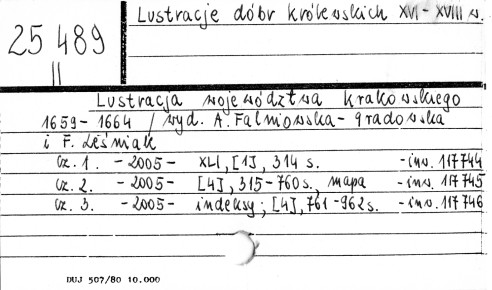 Lustracje dóbr królewskich XVI - XVIII w.
25 489
II
Lustracja województwa krakowskiego
1659 - 1664 / wyd. A. Falniowska - Gradowska
i F. Leśniak
Cz. 1. - 2005 - XLI, [1], 314 s. - inw. 117744
Cz. 2. - 2005 - [4], 315-760 s., mapa - inw. 117745
Cz. 3. - 2005 - indeksy; [4], 761-962 s. - inw. 117746
DUJ 507/80 10.000